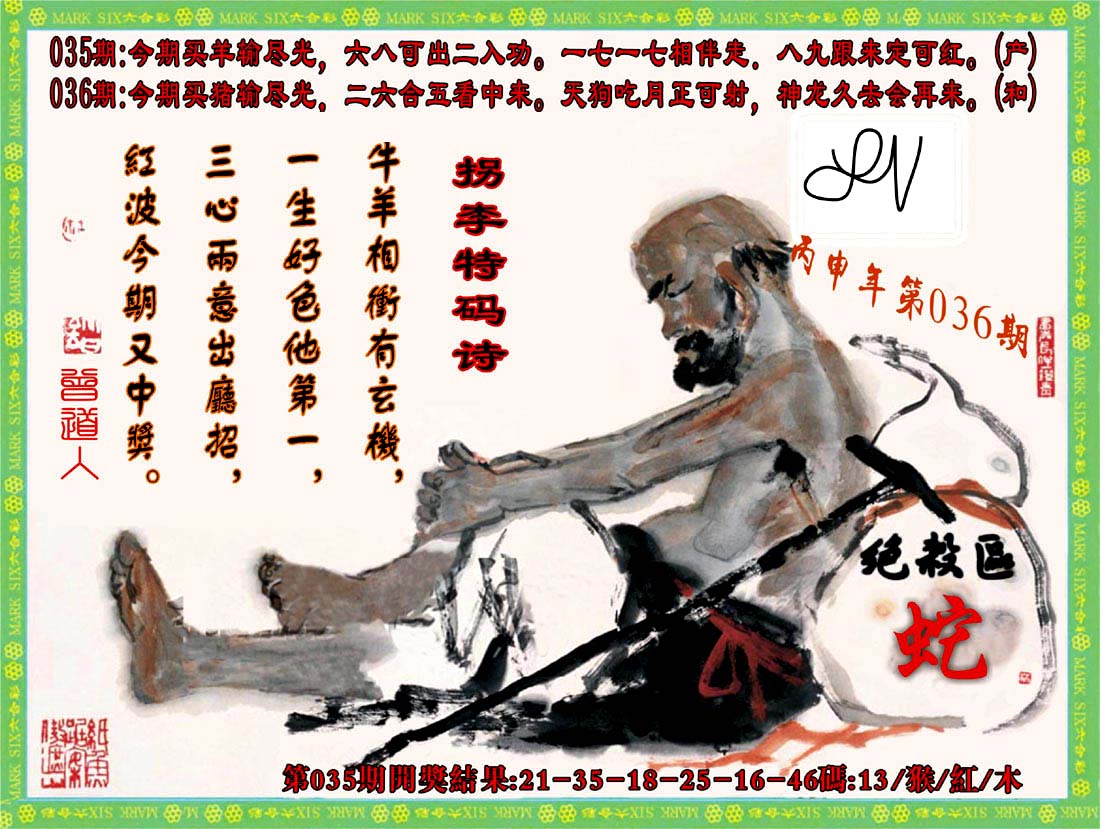 MARK SIX六合彩
035期:今期买羊输尽光，六八可出二入功。一七一七相伴走，八九跟来定可红。(产)
036期:今期买猪输尽光，二六合五看中来。天狗吃月正可射，神龙久去会再来。(和)
丙申年第036期
拐李特码诗
牛羊相衝有玄機，
一生好色他第一，
三心兩意出廳招，
紅波今期又中獎。
曾道人
绝殺區
蛇
第035期開獎結果:21-35-18-25-16-46碼:13/猴/紅/木